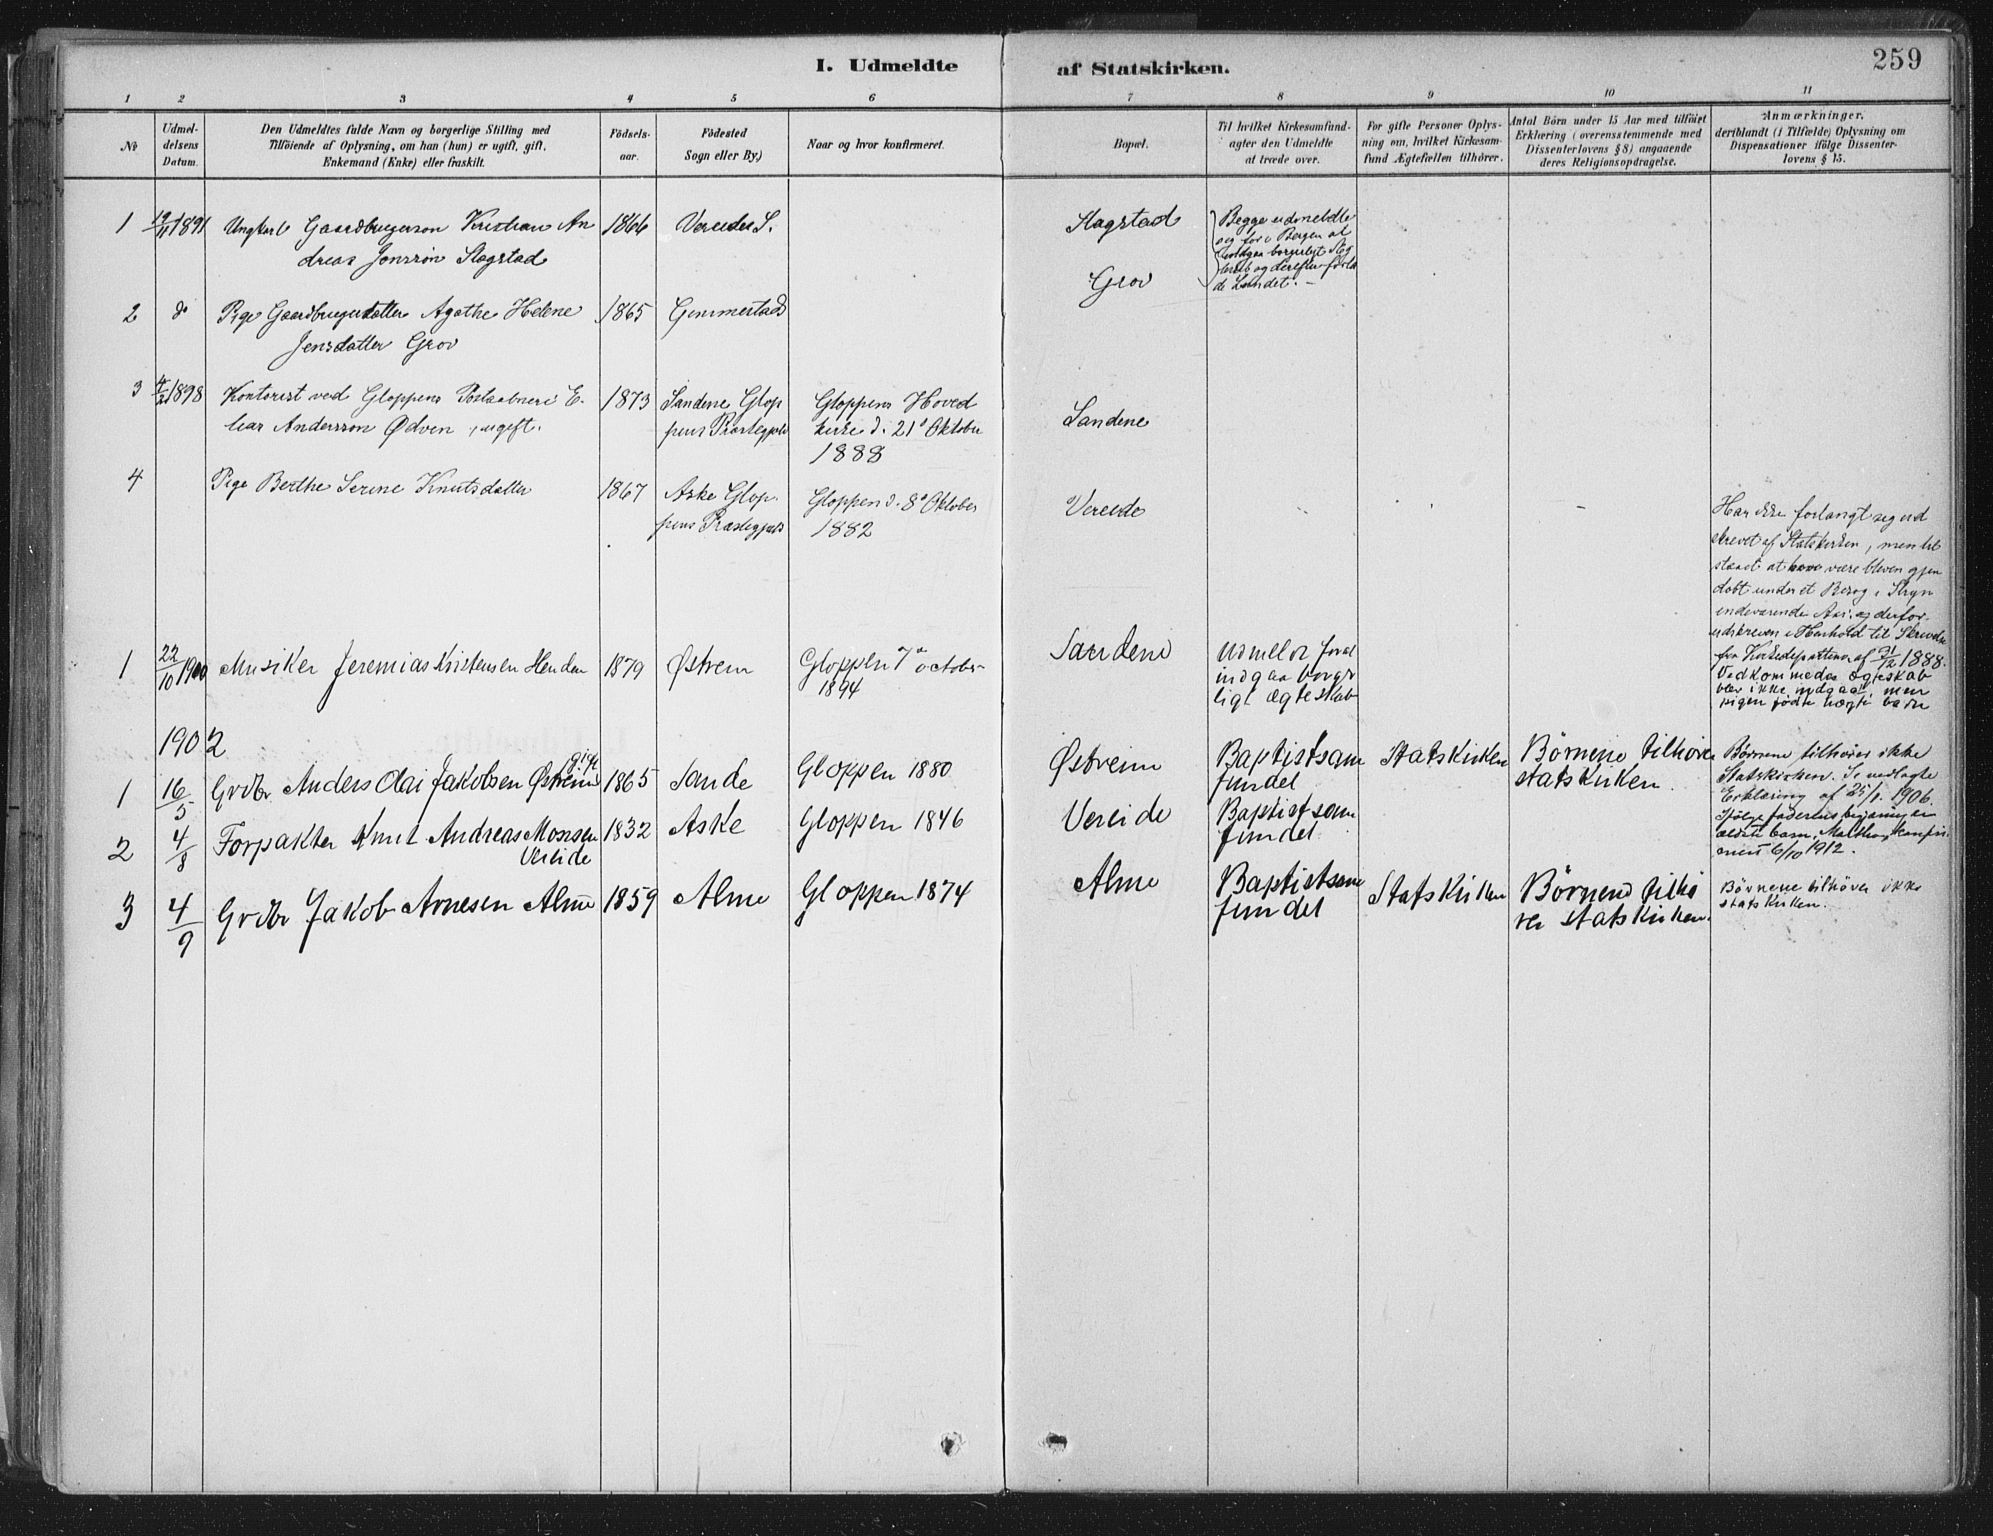 259
I. Udmeldte af Statskirken.
1 2 3 4 5 6 7 8 9 10 11
No
Udmel-
delsens
Datum.
Den Udmeldtes fulde Navn og borgerlige Stilling med
Tilföiende af Oplysning, om han (hun) er ugift, gift,
Enkemand (Enke) eller fraskilt.
Födsels-
aar.
Födested
Sogn eller By.)
Naar og hvor konfirmeret.
Bopæl.
Til hvilket Kirkesamfund-
agter den Udmeldte
at træde over.
For gifte Personer Oplys-
ning om, hvilket Kirkesam-
fund Ægtefællen tilhörer.
Antal Börn under 15 Aar med tilföiet
Erklæring (overensstemmende med
Dissenterlovens § 8) angaaende
deres Religionsopdragelse.
Anmærkninger,
deriblandt (i Tilfælde) Oplysning om
Dispensationer ifölge Dissenter-
lovens § 15.
1
19/11 1891
Ungkarl Gaardbrugersøn Kristian An
dreas Jonssøn Slagstad
1866
Vereides S.
Slagstad
Begge udmeldte
sig for i Bergen at
indgaa borgerligt Æg
teskab og derefter forla
de Landet. –
2
do
Pige Gaardbrugerdatter Agathe Helene
Jensdatter Grov
1865
Gimmestads
Grov
3
4/2 1898
Kontorist ved Gloppens Postaabneri E-
lias Anderssøn Ødven, ugift.
1873
Sandene Glop
pens Præstegjeld
Gloppens Hoved
kirke d. 21de Oktober
1888
Sandene
4
Pige Berthe Serine Knutsdatter
1867
Aske Glop-
pens Præstegjeld
Gloppen d. 8de Oktober
1882
Vereide
Har ikke forlangt sig ud
skrevet af Statskirken, men til
staaet at have være bleven gjen
døbt under et Besøg i Stryn
indeværende Aar og derfor
udskreven i Henhold til Skrivelse
fra Kirkedepartem. af 31/12 1888.
1
22/10 1900
Musiker Jeremias Kristensen Henden
1879
Østrem
Gloppen 7de october
1894
Sandene
Udmeldt for at
indgaa borger
ligt ægteskab
Vedkommedes ægteskab
blev ikke indgaaet, men
pigen fødte uægte barn
1902
1
16/5
Grdbr Anders Olai Jakobsen Østreim
gift
1865
Sande
Gloppen 1880
Østreim
Baptistsam
fundet
Statskirken
Börnene tilhöre
statskirken.
Börnene tilhører ikke
Statskirken. Se vedlagte
Erklæring af 25/1. 1906.
Ifølge faderens begjæring er
ældste barn, Mathias, konfir
meret 6/10 1912.
2
4/8
Forpakter Knut Andreas Monsen
Vereide
1832
Aske
Gloppen 1846
Vereide
Baptistsam
fundet
3
4/9
Grdbr Jakob Arnesen Alme
1859
Alme
Gloppen 1874
Alme
Baptistsam
fundet
Statskirken
Börnene tilhö
rer statskirken.
Börnene tilhörer ikke
statskirken.